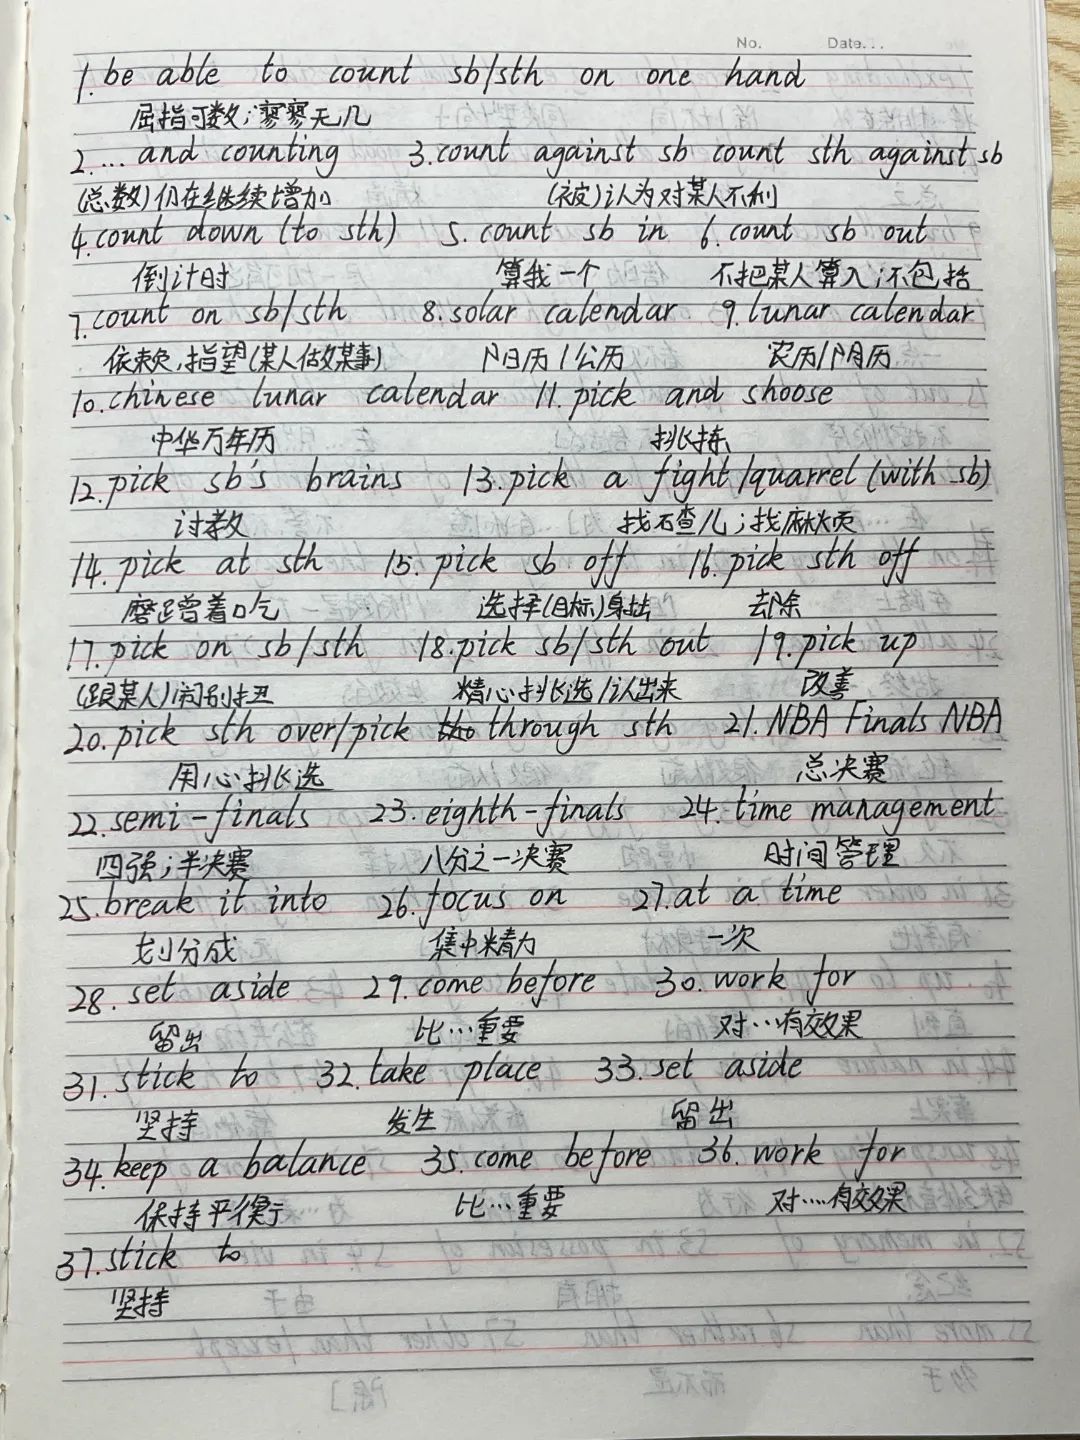 No. Date...
1. be able to count sb/sth on one hand
屈指可数;寥寥无几
2. ... and counting 3. count against sb count sth against sb
(总数)仍在继续增加 (被)认为对某人不利
4. count down (to sth) 5. count sb in 6. count sb out
倒计时 算我一个 不把某人算入;不包括
7. count on sb/sth 8. solar calendar 9. lunar calendar
依赖,指望(某人做某事) 阳历/公历 农历/阴历
10. chinese lunar calendar 11. pick and shoose
中华万年历 挑拣
12. pick sb's brains 13. pick a fight/quarrel (with sb)
讨教 找碴儿;找麻烦
14. pick at sth 15. pick sb off 16. pick sth off
磨蹭着口吃 选择(目标)射拙 去除
17. pick on sb/sth 18. pick sb/sth out 19. pick up
(跟某人)闹别扭 精心挑选/认出来 改善
20. pick sth over/pick through sth 21. NBA Finals NBA
用心挑选 总决赛
22. semi-finals 23. eighth-finals 24. time management
四强;半决赛 八分之一决赛 时间管理
25. break it into 26. focus on 27. at a time
划分成 集中精力 一次
28. set aside 29. come before 30. work for
留出 比…重要 对…有效果
31. stick to 32. take place 33. set aside
坚持 发生 留出
34. keep a balance 35. come before 36. work for
保持平衡 比…重要 对……有效果
37. stick to
坚持